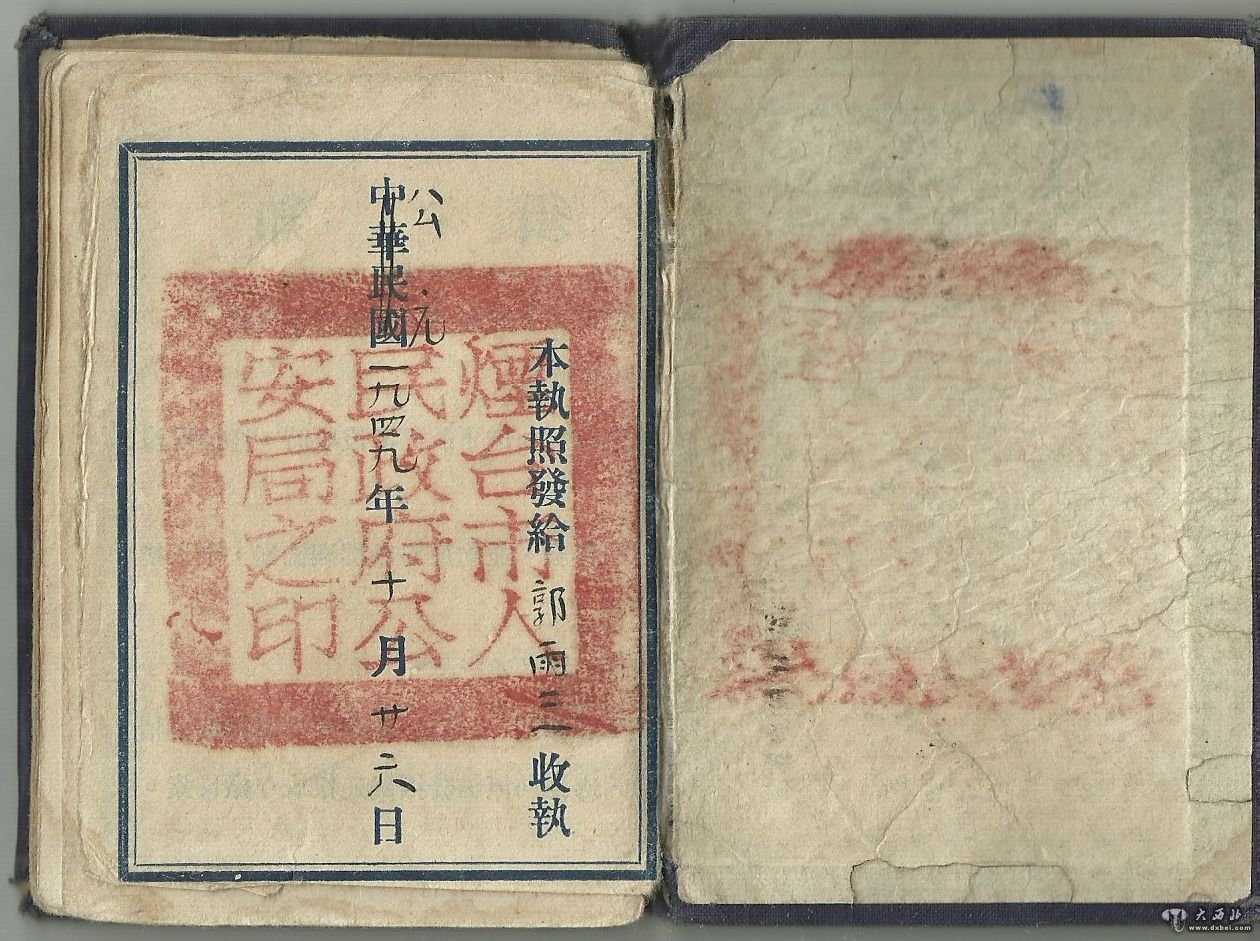 本執照發給郭雨三收執
公元
中華民國一九四九年十月廿六日
煙台市人
民政府公
安局之印
大西北
www.dxbei.com